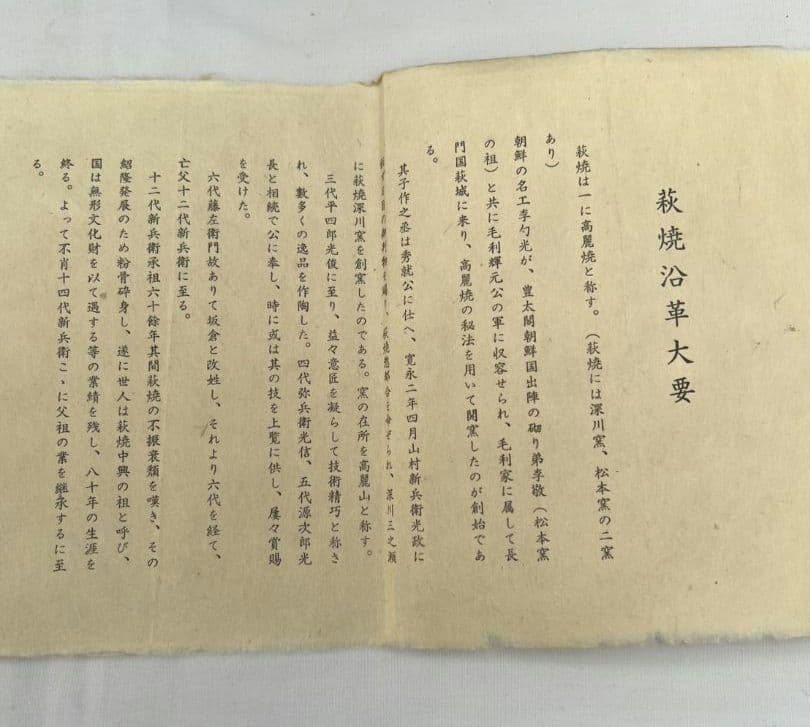 萩焼沿革大要
萩焼は一に高麗焼と称す。(萩焼には深川窯、松本窯の二窯
あり)
朝鮮の名工李勺光が、豊太閤朝鮮国出陣の砌り弟李敬(松本窯
の祖)と共に毛利輝元公の軍に収容せられ、毛利家に属して長
門国萩城に来り、高麗焼の秘法を用いて開窯したのが創始であ
る。
其子作之丞は秀就公に仕へ、寛永二年四月山村新兵衛光政に
、萩焼惣都合を命ぜられ、深川三之瀬
に萩焼深川窯を創窯したのである。窯の在所を高麗山と称す。
三代平四郎光俊に至り、益々意匠を凝らして技術精巧と称さ
れ、数多くの逸品を作陶した。四代弥兵衛光信、五代源次郎光
長と相続で公に奉し、時に或は其の技を上覧に供し、屡々賞賜
を受けた。
六代藤左衛門故ありて坂倉と改姓し、それより六代を経て、
亡父十二代新兵衛に至る。
十二代新兵衛承祖六十餘年其間萩焼の不振衰頽を嘆き、その
紹隆発展のため粉骨砕身し、遂に世人は萩焼中興の祖と呼び、
国は無形文化財を以て遇する等の業績を残し、八十年の生涯を
終る。よって不肖十四代新兵衛こゝに父祖の業を継承するに至
る。